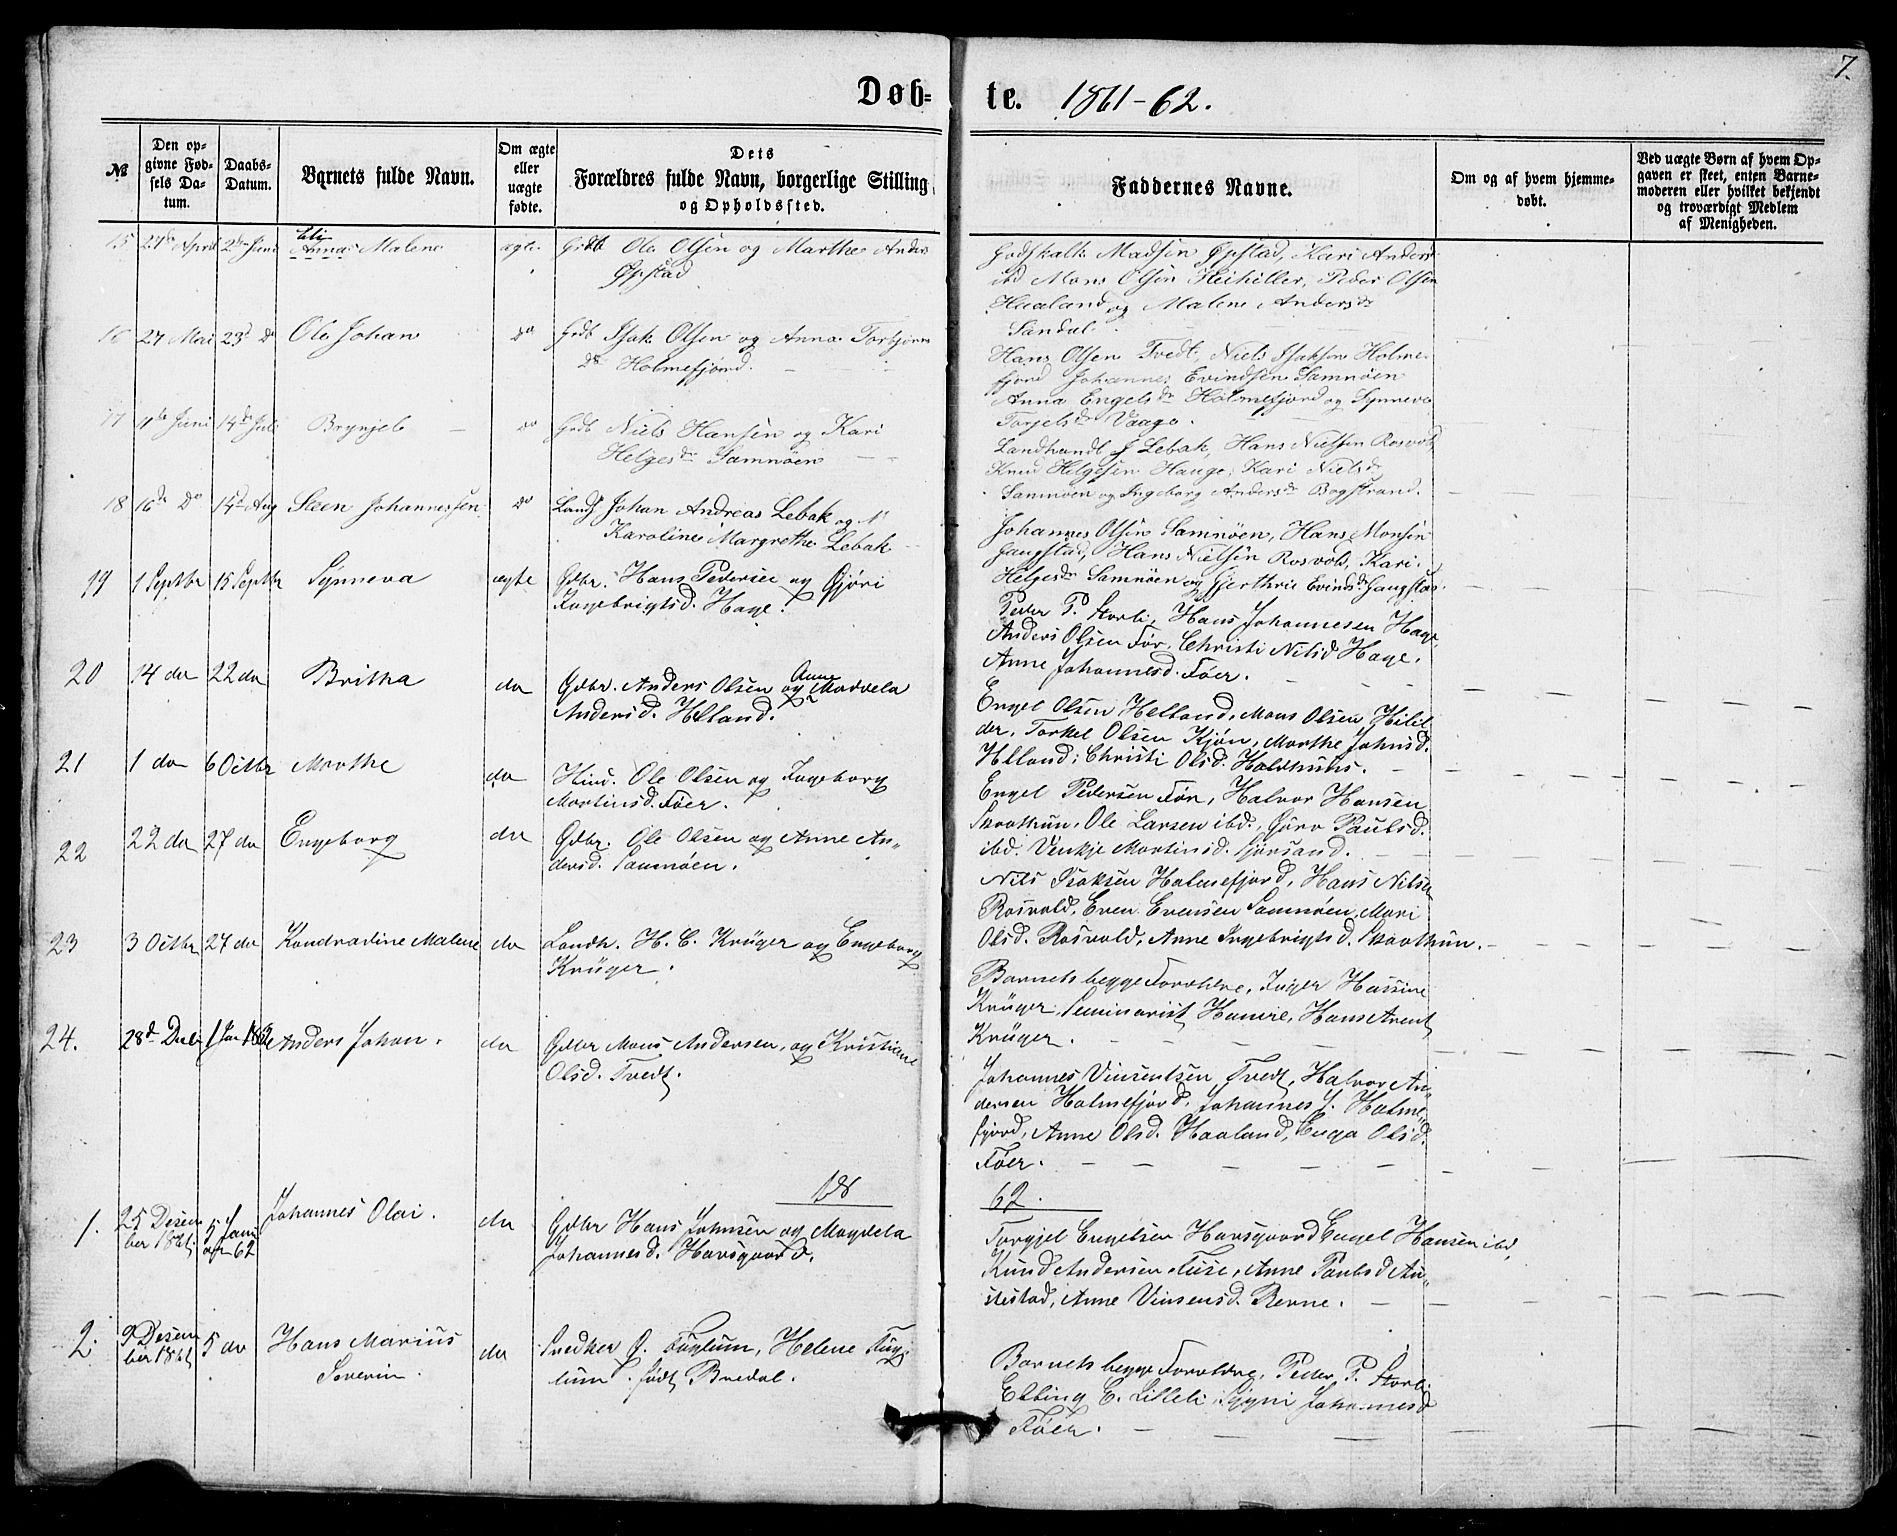 Døb-
te. 1861-62.
7.
№
Den op-
givne Fød-
sels Da-
tum.
Daabs-
Datum.
Barnets fulde Navn.
Om ægte
eller
uægte
fødte.
Dets
Forældres fulde Navn, borgerlige Stilling
og Opholdssted.
Faddernes Navne.
Om og af hvem hjemme-
døbt.
Ved uægte Børn af hvem Op-
gaven er skeet, enten Barne-
moderen eller hvilket bekjendt
og troværdigt Medlem
af Menigheden.
15 27de April 2den Juni Anna Malene ægte Grdb Ole Olsen og Marthe Anders
Øpstad
Godskalk Madsen Øpstad, Kari Anders
ibd Mons Olsen Peder Olsen
Haaland og Malene Andersdr
Sandal.
16 27 Mai 23d Do Ole Johan do Grdb Isak Olsen og Anna Torbjørns
dr Holmefjord.
Hans Olsen Tvedt, Niels Isaksen Holme-
fjord Johannes Evindsen Samnøen
Anna Engelsdr Holmefjord og Synneva
Torgelsdr Vaage.
17 Juni 14de Juli Brynjel do Grdb Niels Hansen og Kari
Helgesdr Samnøen
Landhandl J Lebak, Hans Nielsen Rosvold,
Knud Helgesen Hauge, Kari Nielsdr
Samnøen og Ingeborg Andersdr Bogstrand.
18 16de Do 14de Aug Steen Johannessen do Landh Johan Andreas Lebak og
Karoline Margrethe Lebak
Johannes Olsen Samnøen, Hans Monsen
Gaugstad, Hans Nielsen Rosvold, Kari
Helgesdr Samnøen og Gjerthrie Evindsdr Gaugstad.
19 1 Septbr 15 Septbr Synneva ægte Gdbr. Hans Pedersen og Gjøri
Ingebrigtsd. Hage.
Peder P. Storli, Hans Johannesen Hage,
Anders Olsen Før, Christi Nilsd Hage.
Anne Johannesd. Føer.
20 14 do 22 do Britha do Gdbr. Anders Olsen og Anne Madvela
Andersd. Helland.
Engel Olsen Helland, Mons Olsen Hilil
der, Torkel Olsen Kjøn, Marthe Johnsd.
Helland; Christi Olsd. Holdhuus.
21 1 do 6 Octbr Marthe do Hmd. Ole Olsen og Ingeborg
Martinsd. Føer.
Engel Pedersen Før, Halvor Hansen
Skaathun, Ole Larsen ibd., Gøro Paulsd.
ibd. Venkje Martinsd. Fjørsand.
22 22 do 27 do Engeborg do Gdbr. Ole Olsen og Anne An-
dersd. Samnøen.
Nils Isaksen Holmefjord, Hans Nilsen
Rosvold, Even Evensen Samnøen, Mari
Olsd. Rosvold, Anne Ingebrigtsd. Skaathun.
23 3 Octbr 27 do Kondradine Malene do Landh. H. C. Krüger og Engeborg
Krüger.
Barnets begge Forældre, Inger Hassine
Krüger, Seminarist Hamre, Hans Arent
Krüger.
24. 28d Deb 1 Jan 1862 Anders Johan. do Gdbr Mons Andersen, og Kristiane
Olsd. Tvedt.
Johannes Vinsentsen Tvedt, Halvor An-
dersen Holmefjord, Johannes J. Holme-
fjord, Anne Olsd. Haaland, Enga Olsd.
Føer.
18
62.
1. 25 Desem
ber 1861. 5 Janu
ar 62 Johannes Olai. do Gdbr Hans Johnsen og Magdela
Johannesd. Havsgaard.
Torgjel Engelsen Havsgaard Engel Hansen ibd,
Knud Andersen Fuse, Anne Paulsd An-
stestad, Anne Vinsensd. Berne.
2. 9 Desem
ber 1861 5 do Hans Marius
Severin. do Snedker O. Fuglum, Helene Fug-
lum. født Bredal.
Barnets begge Forældre, Peder P. Storli
Ebbing E. Lilleli, Gjøri Johannesd
Føer.